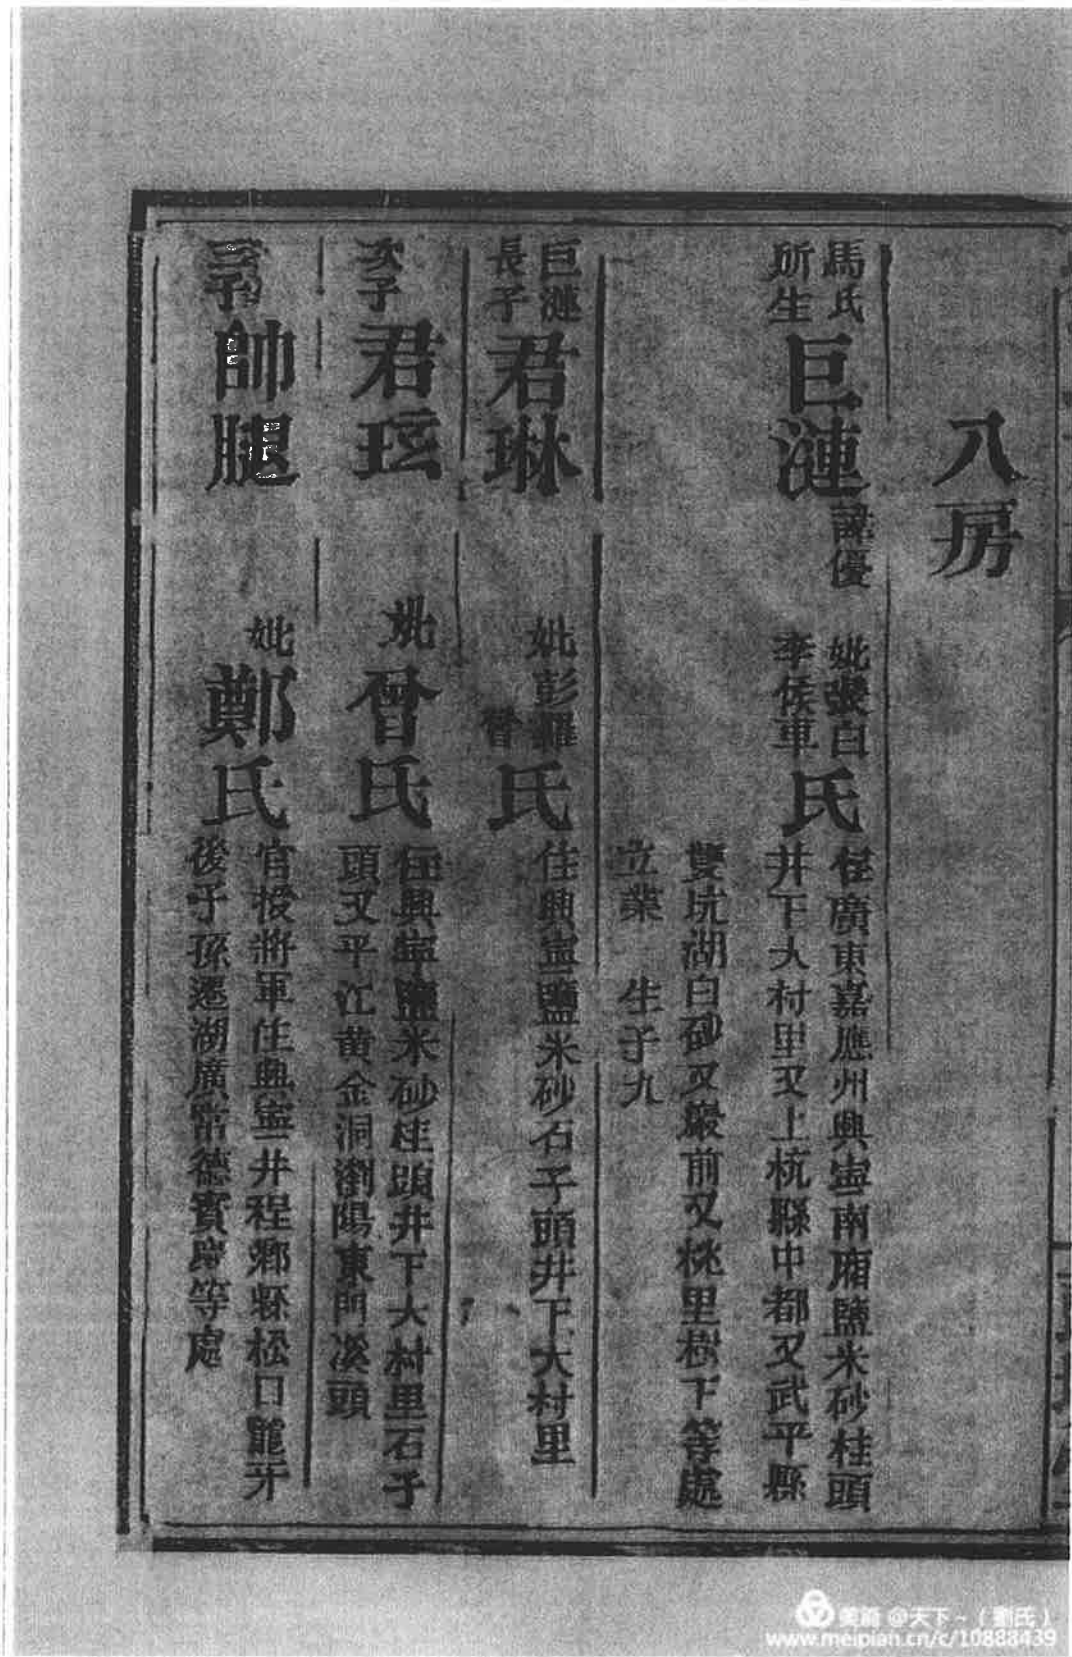 八房
馬氏
所生
巨漣
諱優
妣張白
李侯車
氏
住廣東嘉應州興寧南廂鹽米砂桂頭
井下大村里又上杭縣中都又武平縣
雙坑湖白砂又巖前又桃里樹下等處
立業 生子九
巨漣
長子
君琳
妣彭羅
曾
氏
住興寧鹽米砂石子頭井下大村里
次子
君玹
妣
曾氏
住興寧鹽米砂桂頭井下大村里石子
頭又平江黄金洞瀏陽東門溪頭
三子
帥腿
妣
鄭氏
官授將軍住興寧井程鄉縣松口龍牙
後子孫遷湖廣常德寳慶等處
美篇 @天下~（劉氏）
www.meipian.cn/c/10888439